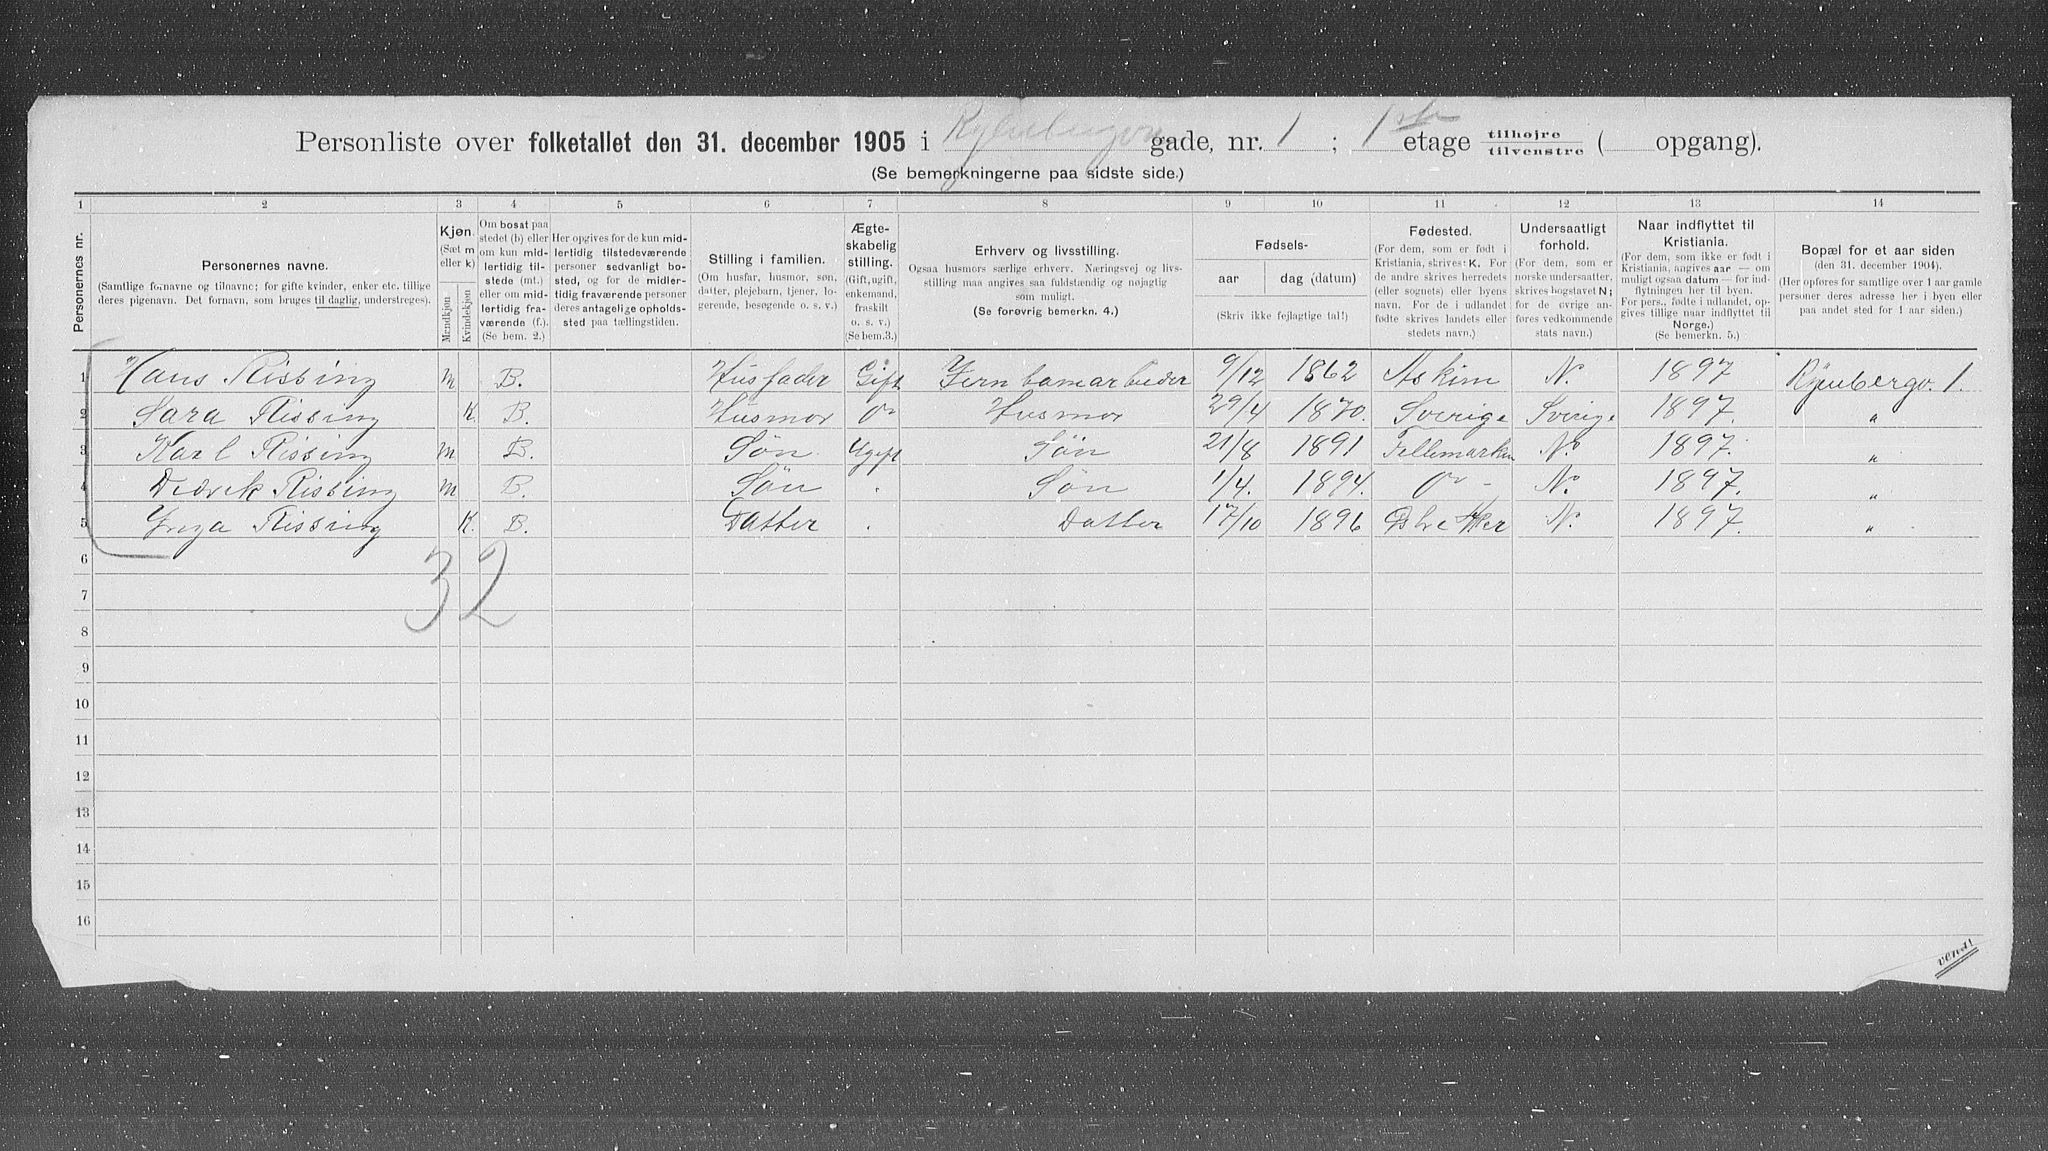 Personliste over folketallet den 31. december 1905 i gade, nr. 1 ; 1ste etage tilhøjre tilvenstre ( opgang).
(Se bemerkningerne paa sidste side.)
1 2 3 4 5 6 7 8 9 10 11 12 13 14
Personernes nr.
Personernes navne.
(Samtlige fornavne og tilnavne; for gifte kvinder, enker etc. tillige deres pigenavn. Det fornavn, som bruges til daglig, understreges).
Kjøn.
(Sæt m eller k)
Mandkjøn.
Kvindekjøn
Om bosat paa stedet (b) eller om kun midlertidig tilstede (mt.) eller om midlertidig fraværende (f.).
(Se bem. 2.)
Her opgives for de kun midlertidig tilstedeværende personer sedvanligt bosted, og for de midlertidig fraværende personer deres antagelige opholdssted paa tællingstiden.
Stilling i familien.
(Om husfar, husmor, søn, datter, plejebarn, tjener, logerende, besøgende o. s. v.)
Ægteskabelig stilling.
(Gift, ugift, enkemand, fraskilt o. s. v.)
(Se bem.3.)
Erhverv og livsstilling.
Ogsaa husmors særlige erhverv. Næringsvej og livsstilling maa angives saa fuldstændig og nøjagtig som muligt.
(Se forøvrig bemerkn. 4.)
Fødsels-
aar
dag (datum)
(Skriv ikke fejlagtige tal!)
Fødested.
(For dem, som er født i Kristiania, skrives: K. For de andre skrives herredets (eller sognets) eller byens navn. For de i udlandet fødte skrives landets eller stedets navn.)
Undersaatligt forhold.
(For dem, som er norske undersaatter, skrives bogstavet N; for de øvrige anføres vedkommende stats navn.)
Naar indflyttet til Kristiania.
(For dem, som ikke er født i Kristiania, angives aar — om muligt ogsaa datum — for indflytningen her til byen. For pers., fødte i udlandet, opgives tillige naar indflyttet til Norge.)
(Se bemerkn. 5.)
Bopæl for et aar siden
(den 31. december 1904).
(Her opføres for samtlige over 1 aar gamle personer deres adresse her i byen eller paa andet sted for 1 aar siden.)
1 Hans Rissing m B. Husfader Gift Jernbanearbeider 9/12 1862 Askim N. 1897 Ryenbergv. 1.
2 Sara Rissing K. B. Husmor Husmor 29/4 1870. Sverige Sverige 1897. "
3 Karl Rissing m B. Søn. Ugift Søn 21/8 1891 Tellemarken N. 1897. "
4 Dedrek Rissing m B. Søn . Søn 1/4. 1894. N. 1897. "
5 Rissing K. B. Datter . Datter 17/10 1896 Østre Aker N. 1897. "
32
6
7
8
9
10
11
12
13
14
15
16
vend!